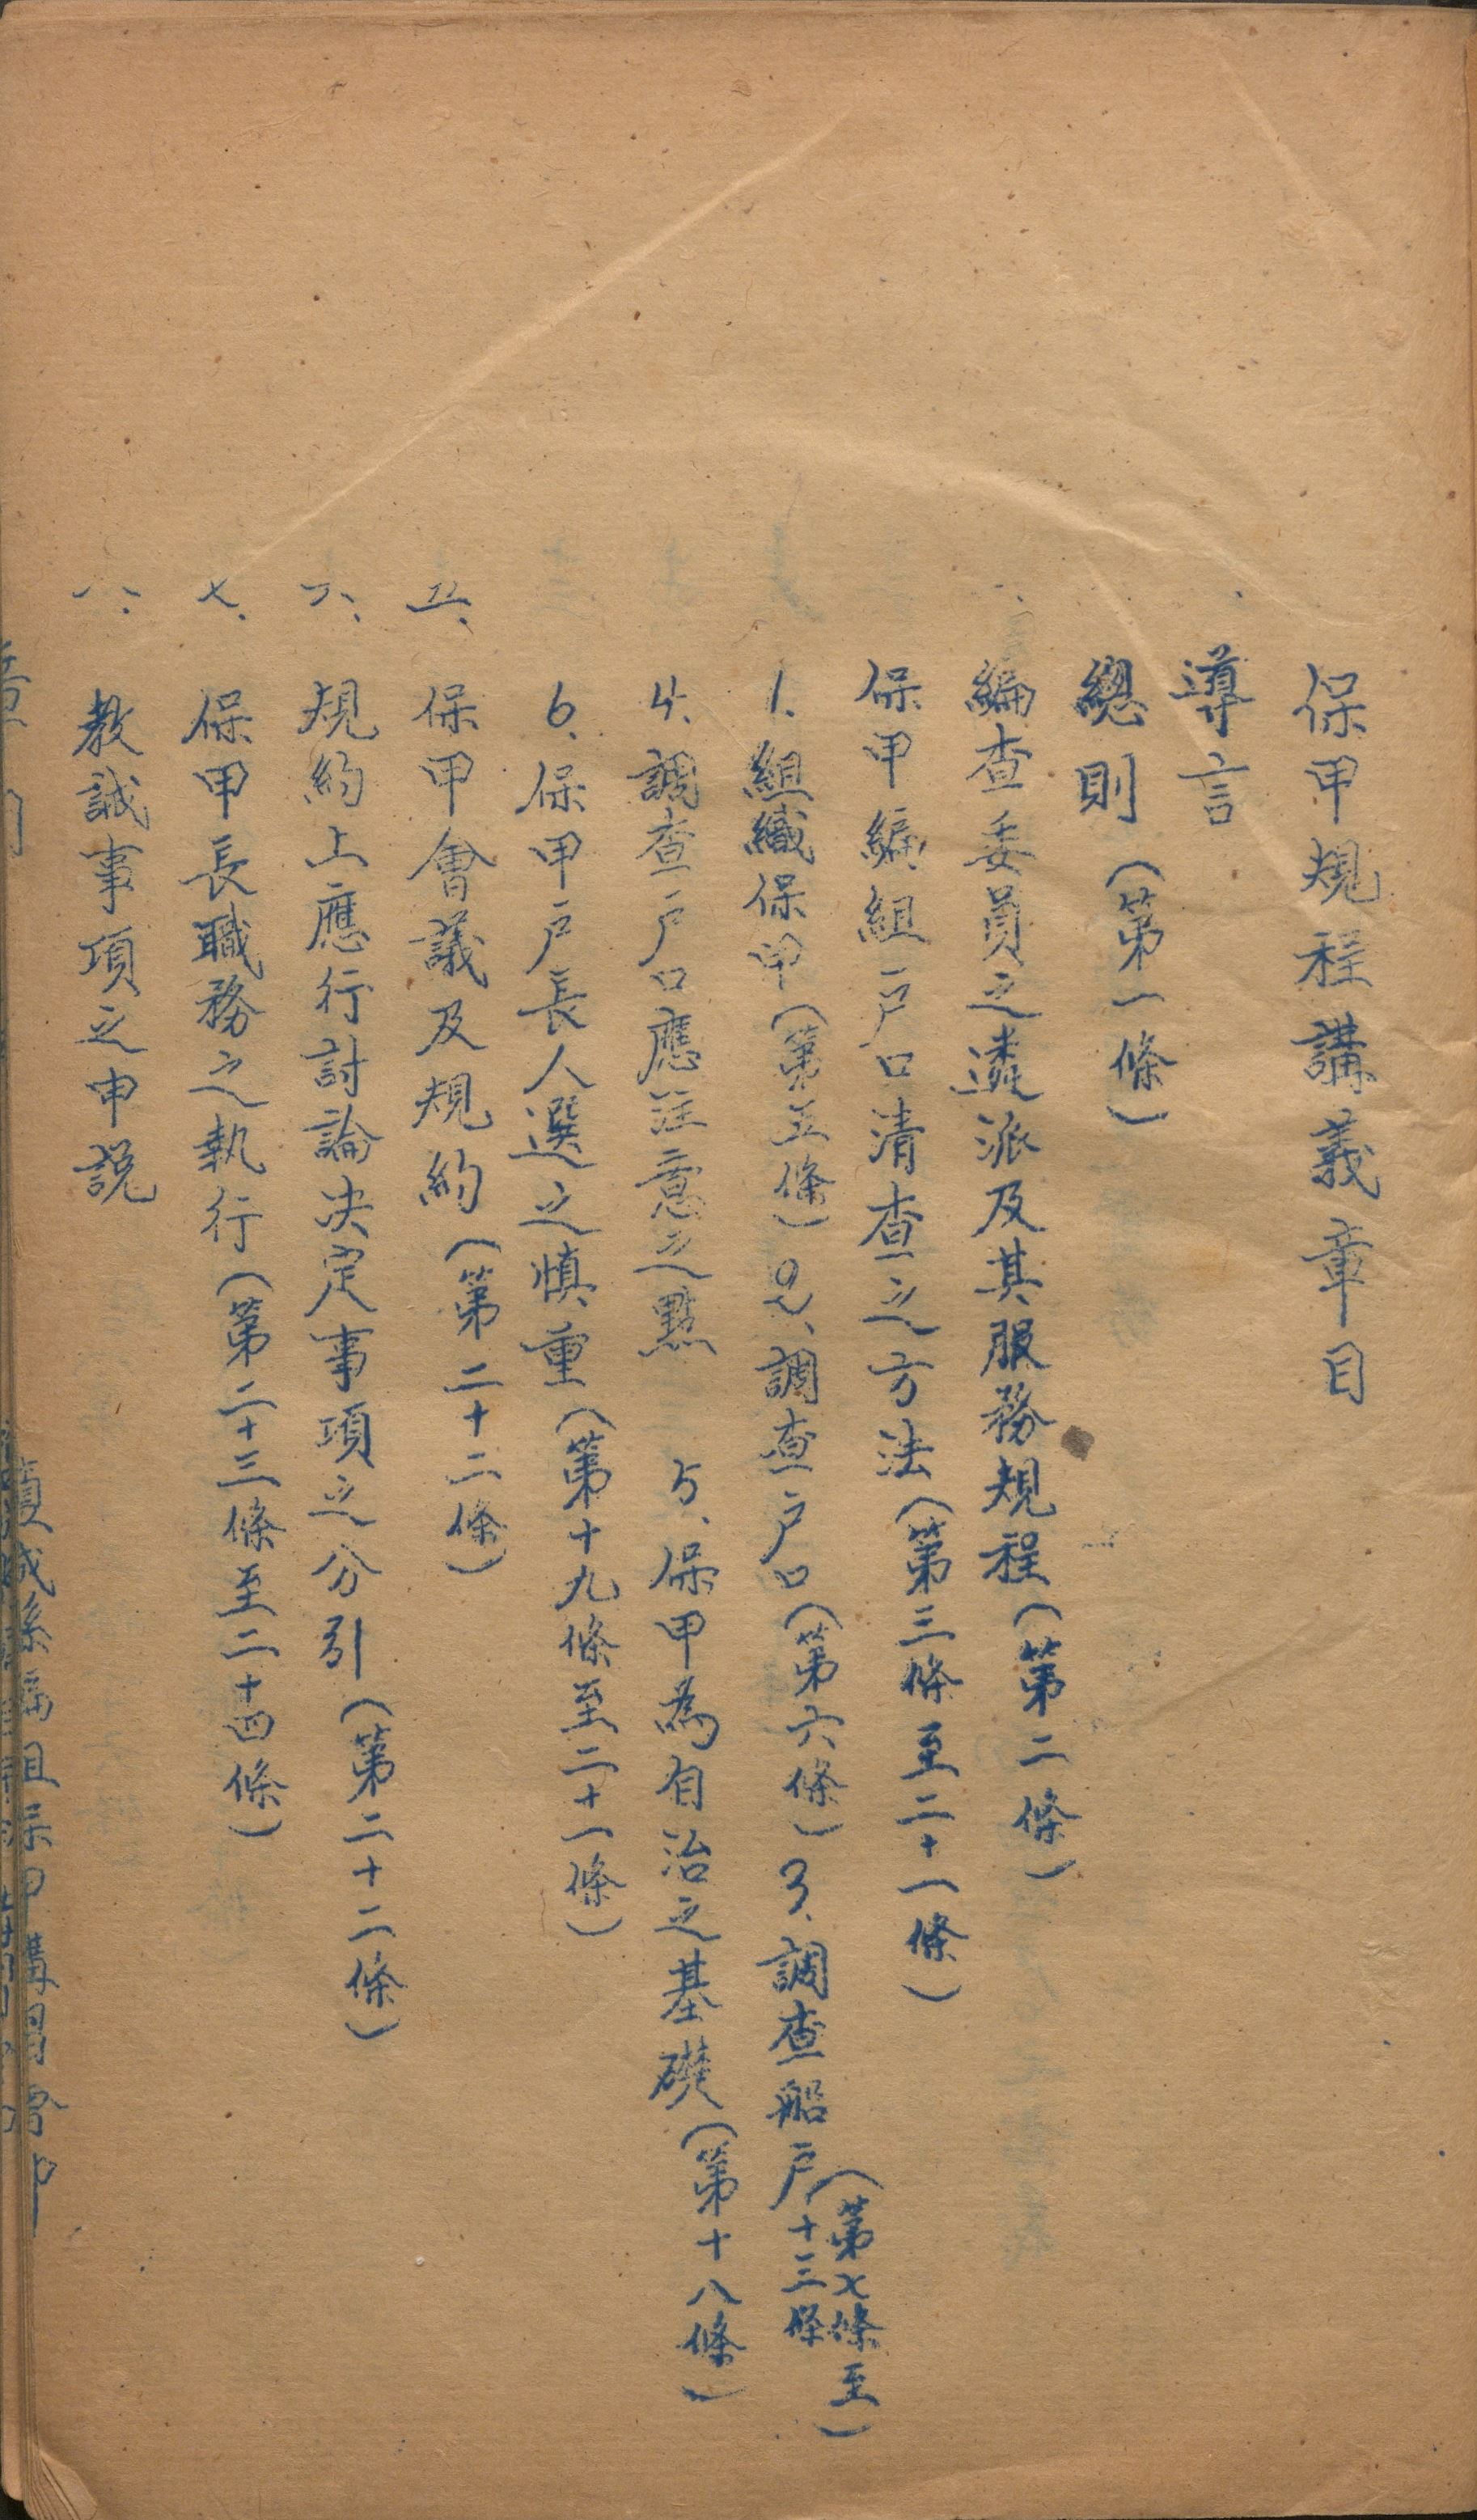 保甲規程講義章目
導言
總則（第一條）
編查委員之遴派及其服務規程（第二條）
保甲編組戶口清查之方法（第三條至二十一條）
1、組織保甲（第五條）2、調查戶口（第六條）3、調查船戶（第七條至十三條）
4、調查戶口應注意之點 5、保甲為自治之基礎（第十八條）
6、保甲戶長人選之慎重（第十九條至二十一條）
五、保甲會議及規約（第二十二條）
六、規約上應行討論決定事項之分引（第二十二條）
七、保甲長職務之執行（第二十三條至二十四條）
八、教誡事項之申說